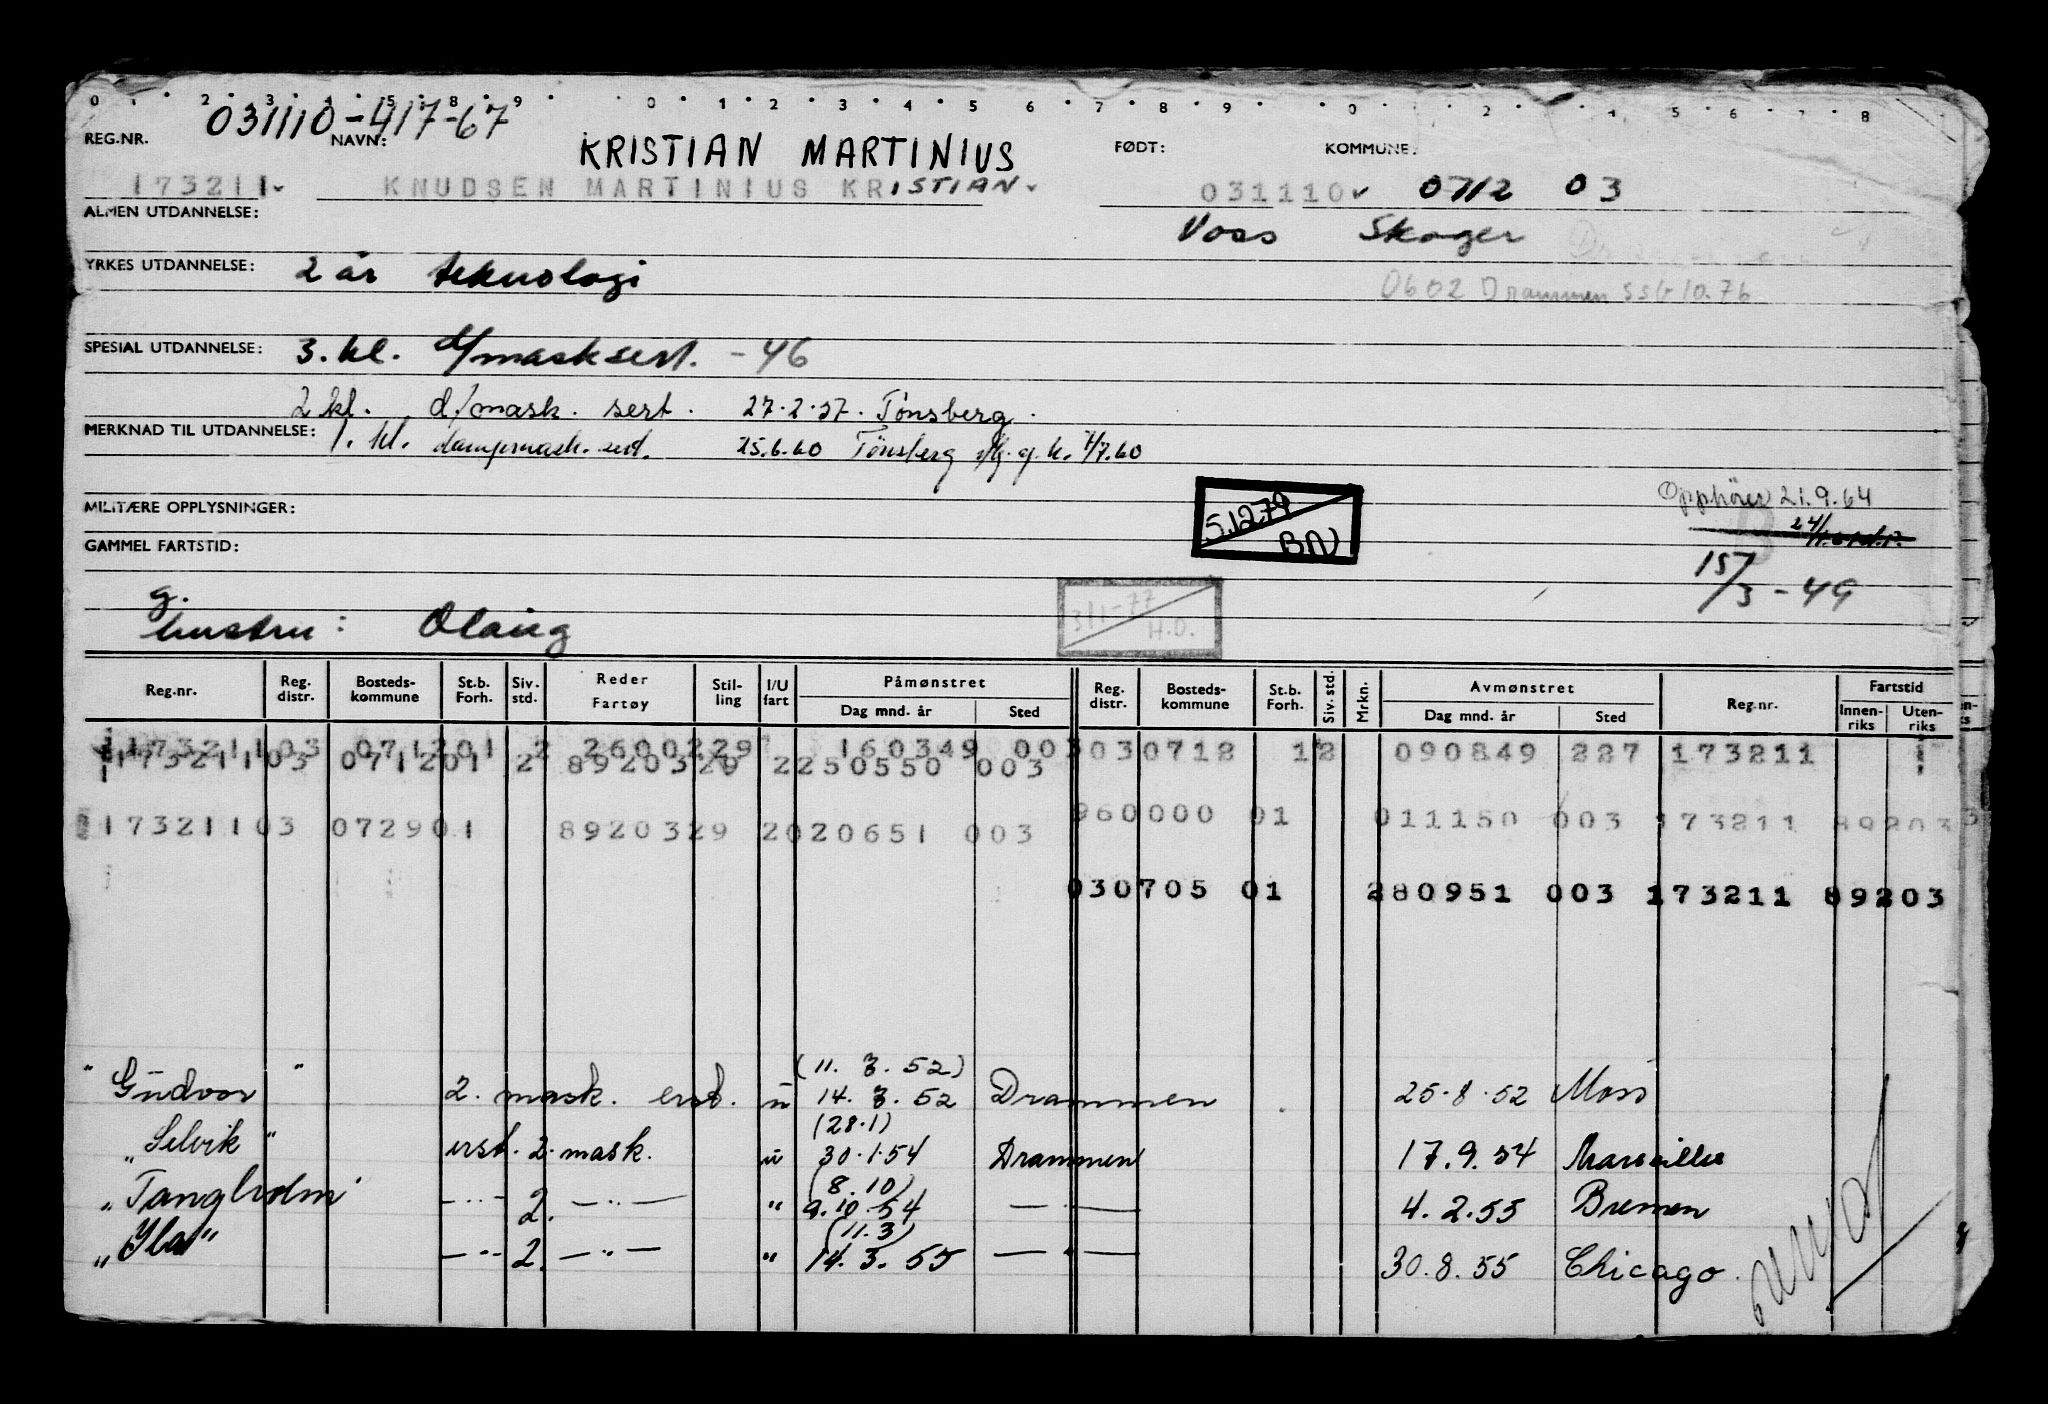 0 2 3 5 8 9 0 1 2 3 4 5 6 7 8 9 0 2 4 5 6 7 8
031110-417-67
REG.NR. NAVN: KRISTIAN MARTINIUS FØDT: KOMMUNE:
173211 KNUDSEN MARTINIUS KRISTIAN 031110 0712 03
ALMEN UTDANNELSE: Voss Skoger
YRKES UTDANNELSE: 2 år teknologi
0602 Drammen SSB 10.76
SPESIAL UTDANNELSE: 3. kl. d/mask sert. -46
2 kl. d/mask. sert. 27.2.57. Tønsberg.
MERKNAD TIL UTDANNELSE: 1. kl. dampmask. sert. 25.6.60 Tønsberg 7/7.60
MILITÆRE OPPLYSNINGER: 5.12.79 BN Opphører 21.9.64
GAMMEL FARTSTID:
15/3 - 49
3/1-77 H.O.
g.
hustru: Olaug
Reg.nr. Reg. distr. Bosteds-kommune St.b. Forh. Siv. std. Reder Fartøy Stil-ling I/U fart Påmønstret Dag mnd. år Sted Reg. distr. Bosteds-kommune St.b. Forh. Siv. std. Mrkn. Avmønstret Dag mnd. år Sted Reg.nr. Fartstid Innen-riks Uten-riks
173211 03 0712 01 2 2600229 160349 003 03 0712 1 2 090849 227 173211
173211 03 0712 01 2 8920329 2 250550 003
960000 01 011150 003 173211 89203
173211 03 0729 01 8920329 2 020651 003
03 0705 01 280951 003 173211 89203
(11. 3. 52)
"Gudvor" 2. mask. erst. u 14. 3. 52 Drammen 25.8.52 Moss
(28.1)
"Selvik" erst. 2. mask. u 30.1.54 Drammen 17.9.54 Marseilles
(8.10)
"Tangholm" —"— 2. —"— " 9.10.54 —"— 4.2.55 Bremen
(11.3)
"Yla" —"— 2. —"— " 14.3.55 —"— 30.8.55 Chicago.